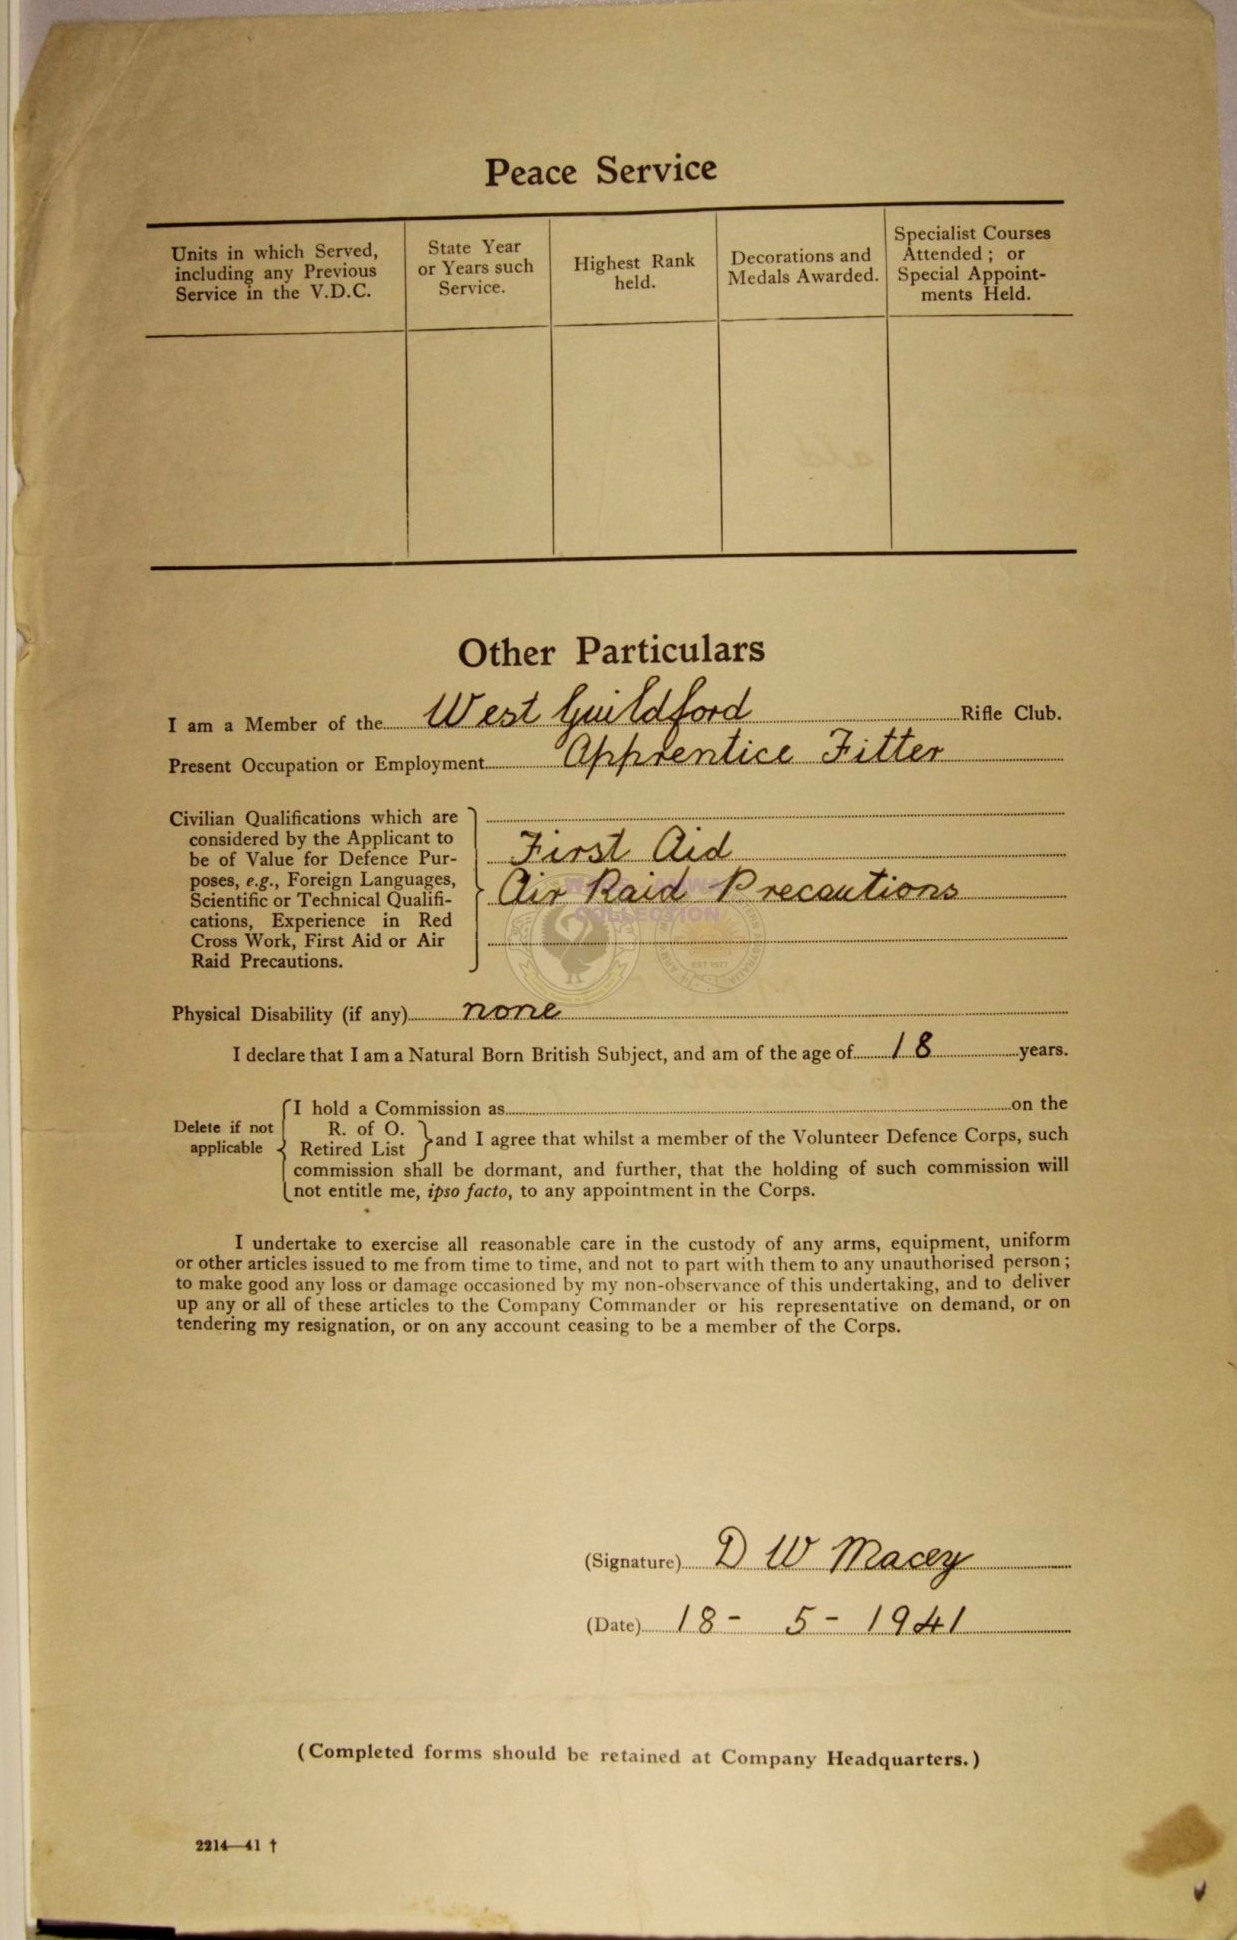 Peace Service
Units in which Served,
including any Previous
Service in the V.D.C.
State Year
or Years such
Service.
Highest Rank
held.
Decorations and
Medals Awarded.
Specialist Courses
Attended ; or
Special Appoint-
ments Held.
Other Particulars
I am a Member of the West Guildford Rifle Club.
Present Occupation or Employment Apprentice Fitter
Civilian Qualifications which are
considered by the Applicant to
be of Value for Defence Pur-
poses, e.g., Foreign Languages,
Scientific or Technical Qualifi-
cations, Experience in Red
Cross Work, First Aid or Air
Raid Precautions.
First Aid
Air Raid Precautions
COLLECTION
Physical Disability (if any) none
I declare that I am a Natural Born British Subject, and am of the age of 18 years.
Delete if not
applicable
I hold a Commission as on the
R. of O.
Retired List
and I agree that whilst a member of the Volunteer Defence Corps, such
commission shall be dormant, and further, that the holding of such commission will
not entitle me, ipso facto, to any appointment in the Corps.
I undertake to exercise all reasonable care in the custody of any arms, equipment, uniform
or other articles issued to me from time to time, and not to part with them to any unauthorised person ;
to make good any loss or damage occasioned by my non-observance of this undertaking, and to deliver
up any or all of these articles to the Company Commander or his representative on demand, or on
tendering my resignation, or on any account ceasing to be a member of the Corps.
(Signature) D W Macey
(Date) 18 - 5 - 1941
(Completed forms should be retained at Company Headquarters.)
2214—41 †